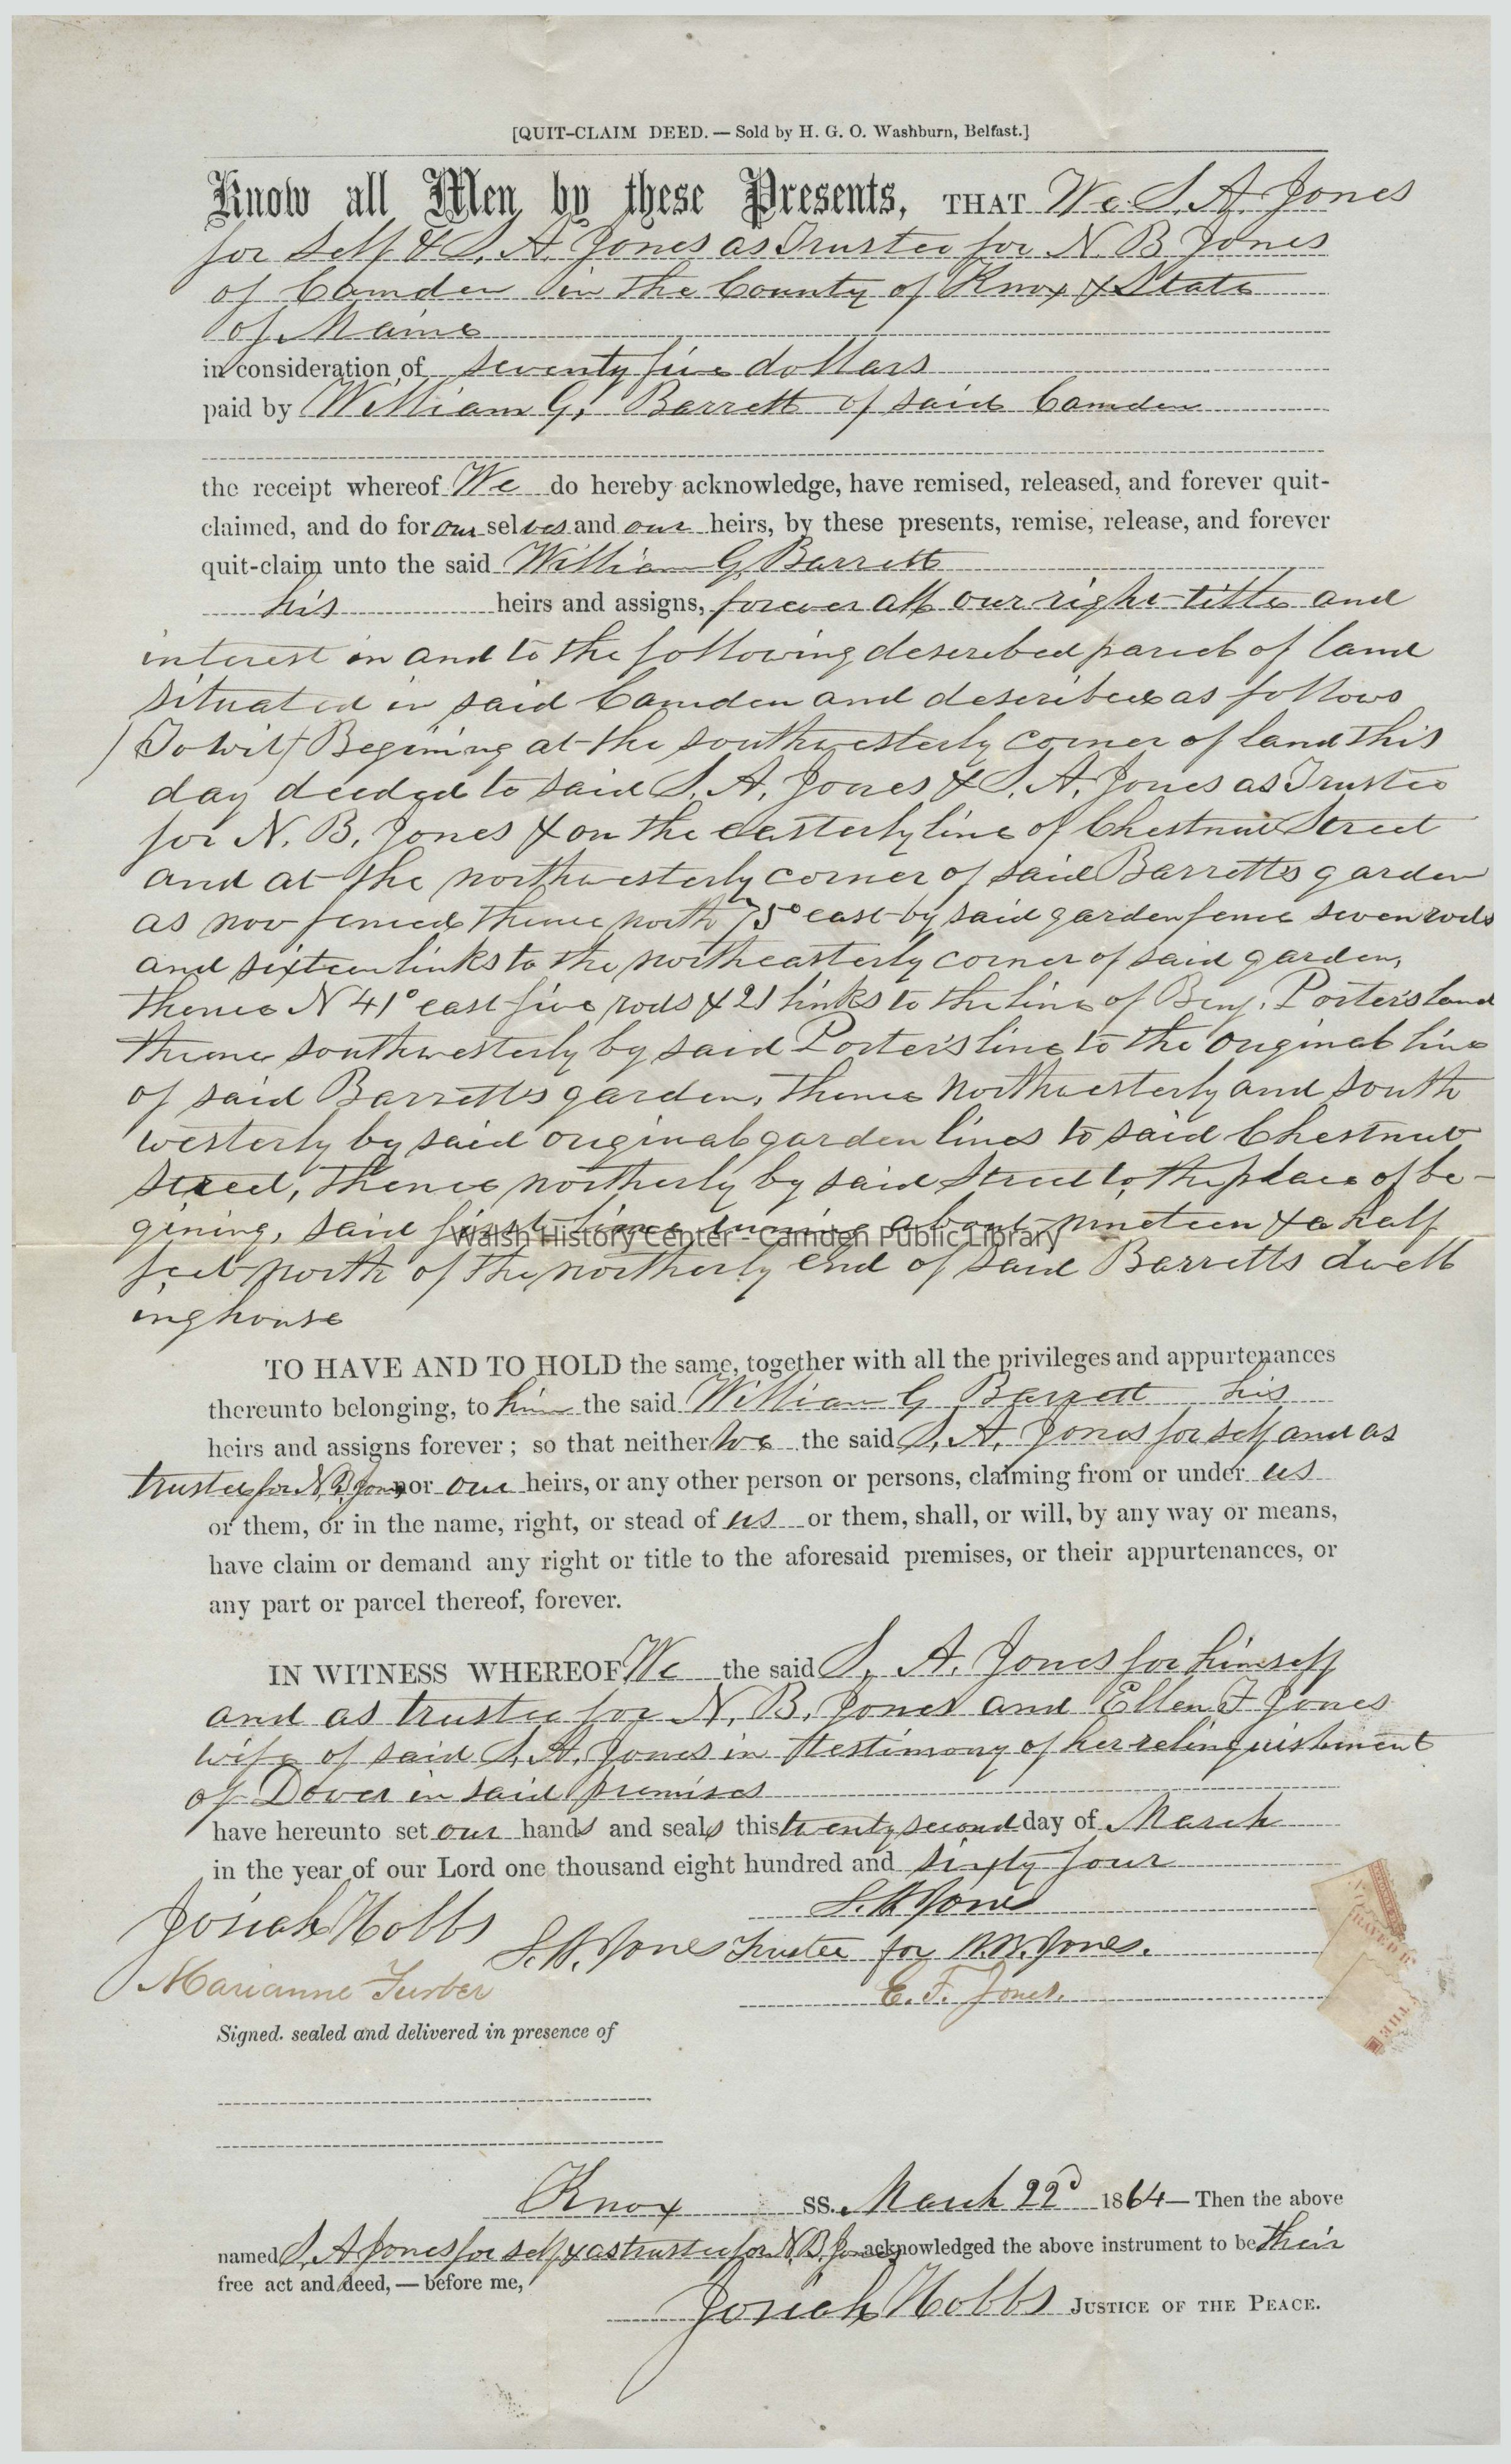 [QUIT-CLAIM DEED. — Sold by H. G. O. Washburn, Belfast.]
Know all Men by these Presents, THAT We S. A. Jones
for self & S. A. Jones as Trustee for N. B Jones
of Camden in the County of Knox & State
of Maine
in consideration of seventy five dollars
paid by William G. Barrett of said Camden
the receipt whereof We do hereby acknowledge, have remised, released, and forever quit-
claimed, and do for our selves and our heirs, by these presents, remise, release, and forever
quit-claim unto the said William G Barrett
his heirs and assigns, forever all our right title and
interest in and to the following described parcel of land
situated in said Camden and described as follows
(To wit) Begining at the southwesterly corner of land this
day deeded to said S. A. Jones & S. A. Jones as Trustee
for N. B. Jones & on the easterly line of Chestnut Street
and at the northwesterly corner of said Barretts garden
as now fenced thence north 75° east by said garden fence seven rods
and sixteen links to the northeasterly corner of said garden,
thence N 41° east five rods & 21 links to the line of Benj. Porter's land
thence southwesterly by said Porter's line to the original line
of said Barrett's garden, thence northwesterly and south
westerly by said original garden lines to said Chestnut
Street, thence northerly by said Street to the place of be-
gining, said first line running about nineteen & a half
Walsh History Center - Camden Public Library
feet north of the northerly end of said Barretts dwell
ing house
TO HAVE AND TO HOLD the same, together with all the privileges and appurtenances
thereunto belonging, to him the said William G Barrett his
heirs and assigns forever; so that neither We the said S. A. Jones for self and as
trustee for N. B. Jones, nor our heirs, or any other person or persons, claiming from or under us
or them, or in the name, right, or stead of us or them, shall, or will, by any way or means,
have claim or demand any right or title to the aforesaid premises, or their appurtenances, or
any part or parcel thereof, forever.
IN WITNESS WHEREOF, We the said S. A. Jones for himself
and as trustee for N. B. Jones and Ellen F Jones
wife of said S. A. Jones in testimony of her relinquishment
of Dower in said premises
have hereunto set our hands and seals this twenty second day of March
in the year of our Lord one thousand eight hundred and sixty four
S. A. Jones
Josiah Hobbs S. A. Jones Trustee for N. B. Jones.
Marianne Furber E. F. Jones.
Signed. sealed and delivered in presence of
Knox SS. March 22d 1864— Then the above
named S. A Jones for self & as trustee for N. B. Jones acknowledged the above instrument to be their
free act and deed, — before me,
Josiah Hobbs JUSTICE OF THE PEACE.